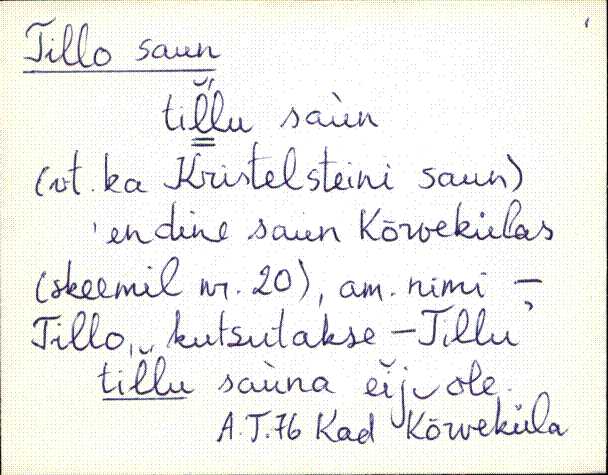 Tillo saun
til̆lu saùn
(vt. ka Kristelsteini saun)
'endine saun Kõrvekülas
(skeemil nr. 20), am. nimi –
Tillo, kutsutakse – Tillu
til̆lu saùna eĭj‿ole.
A.T.76 Kad Kõrveküla